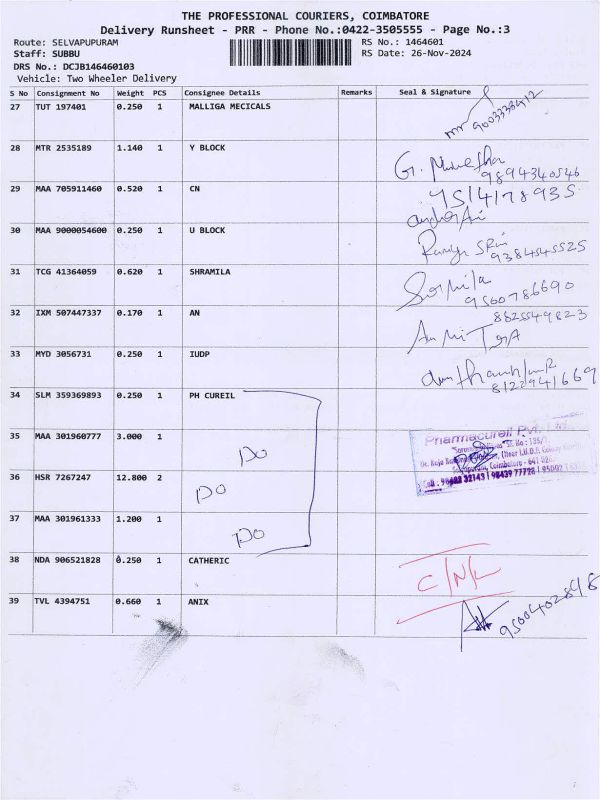 THE PROFESSIONAL COURIERS, COIMBATORE
Delivery Runsheet - PRR - Phone No.:0422-3505555 - Page No.:3
Route: SELVAPUPURAM RS No.: 1464601
Staff: SUBBU RS Date: 26-Nov-2024
DRS No.: DCJB146460103
Vehicle: Two Wheeler Delivery
S No Consignment No Weight PCS Consignee Details Remarks Seal & Signature
27 TUT 197401 0.250 1 MALLIGA MECICALS
28 MTR 2535189 1.140 1 Y BLOCK
9894340546
29 MAA 705911460 0.520 1 CN
7514178935
30 MAA 9000054600 0.250 1 U BLOCK
9384545525
31 TCG 41364059 0.620 1 SHRAMILA
9500786690
32 IXM 507447337 0.170 1 AN
8825549823
33 MYD 3056731 0.250 1 IUDP
8122941669
34 SLM 359369893 0.250 1 PH CUREIL
35 MAA 301960777 3.000 1 DO
Pharmacureil Pvt. Ltd.
36 HSR 7267247 12.800 2 DO
37 MAA 301961333 1.200 1 DO
38 NDA 906521828 0.250 1 CATHERIC
C/N/L
39 TVL 4394751 0.660 1 ANIX